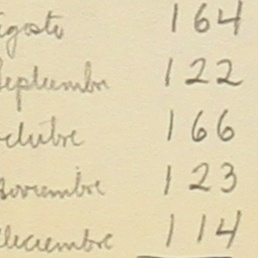 agosto 164
Septiembre 122
octubre 166
noviembre 123
diciembre 114